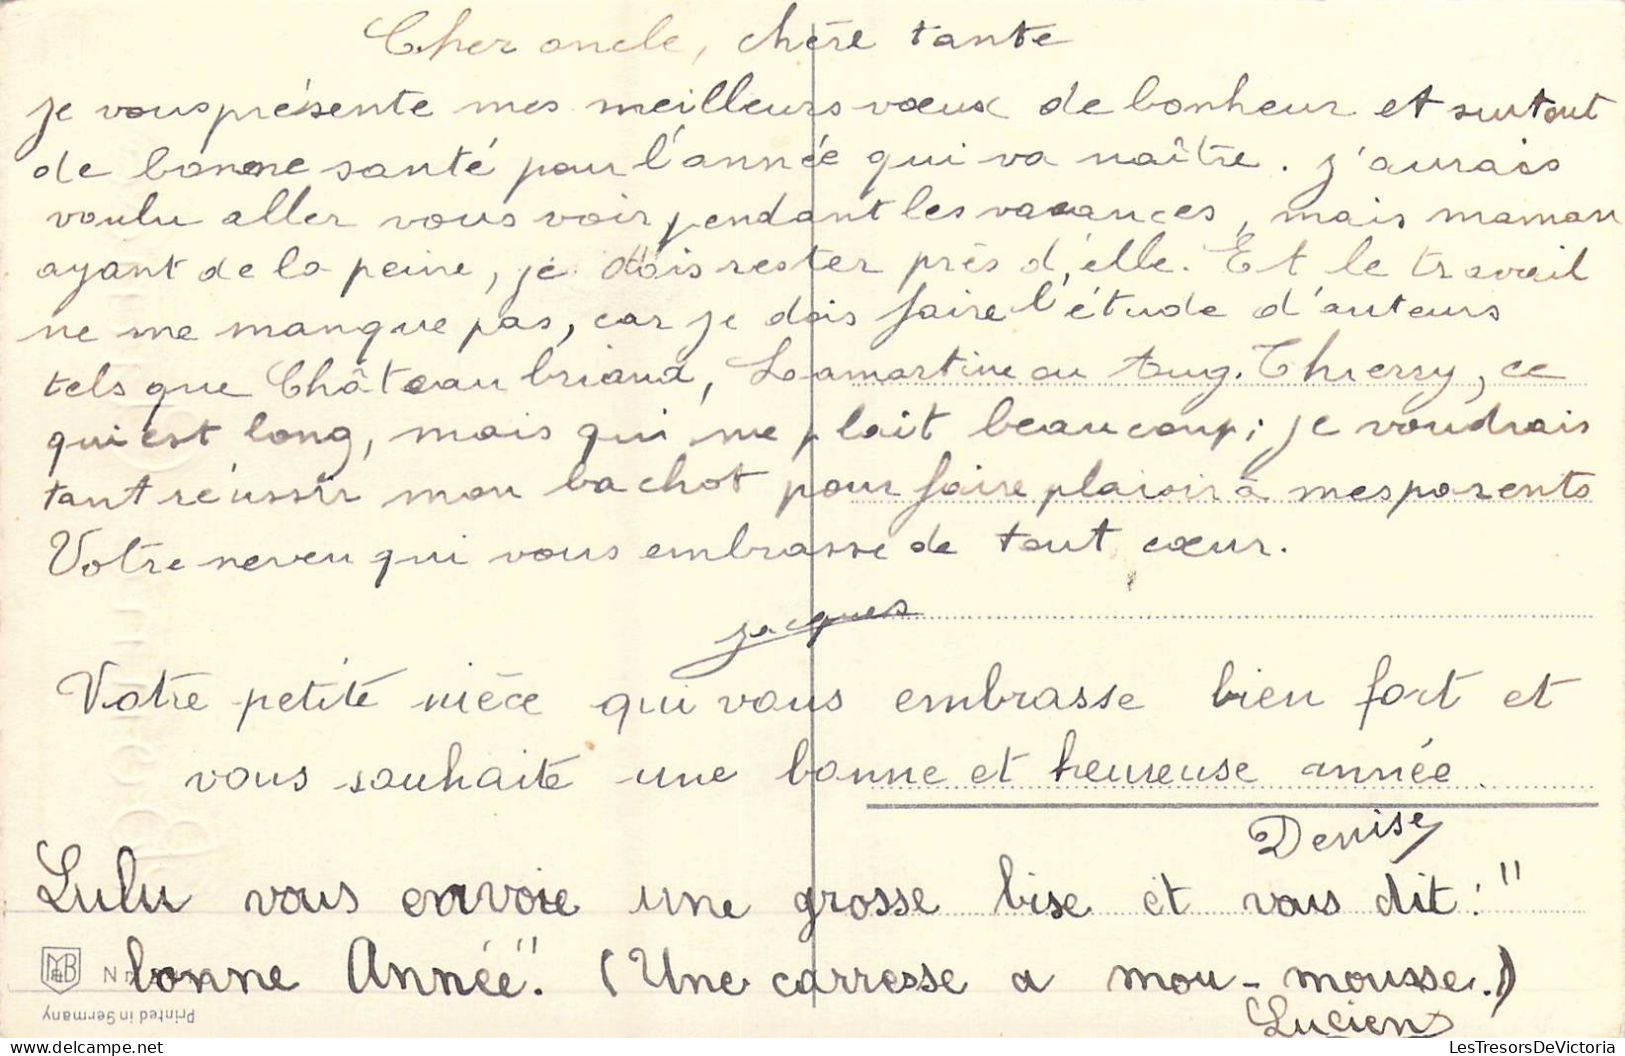 Cher oncle, chère tante
je vous présente mes meilleurs vœux de bonheur et surtout
de bonne santé pour l'année qui va naître. J'aurais
voulu aller vous voir pendant les vacances, mais maman
ayant de la peine, je dois rester près d'elle. Et le travail
ne me manque pas, car je dois faire l'étude d'auteurs
tels que Châteaubriand, Lamartine ou Aug. Thierry, ce
qui est long, mais qui me plait beaucoup; je voudrais
tant réussir mon bachot pour faire plaisir à mes parents
Votre neveu qui vous embrasse de tout cœur.
Jacques
Votre petite nièce qui vous embrasse bien fort et
vous souhaite une bonne et heureuse année.
Denise
Lulu vous envoie une grosse bise et vous dit: "
bonne Année". (Une carresse a mou-mousse.)
Lucien
M&B
Printed in Germany
LesTresorsDeVictoria
www.delcampe.net